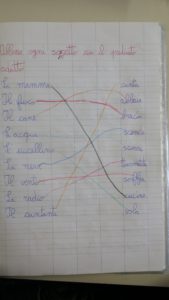 Abbina ogni soggetto con il predicato
adatto
La mamma canta
Il fuoco abbaia
Il cane brucia
L'acqua scende
L'uccellino suona
La neve
Il vento soffia
La radio cucina
Il cantante vola